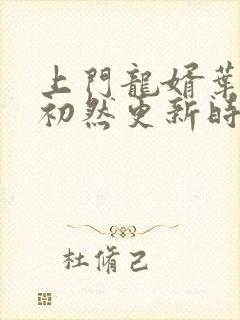 上門龍婿葉
初然更新時
杜脩己